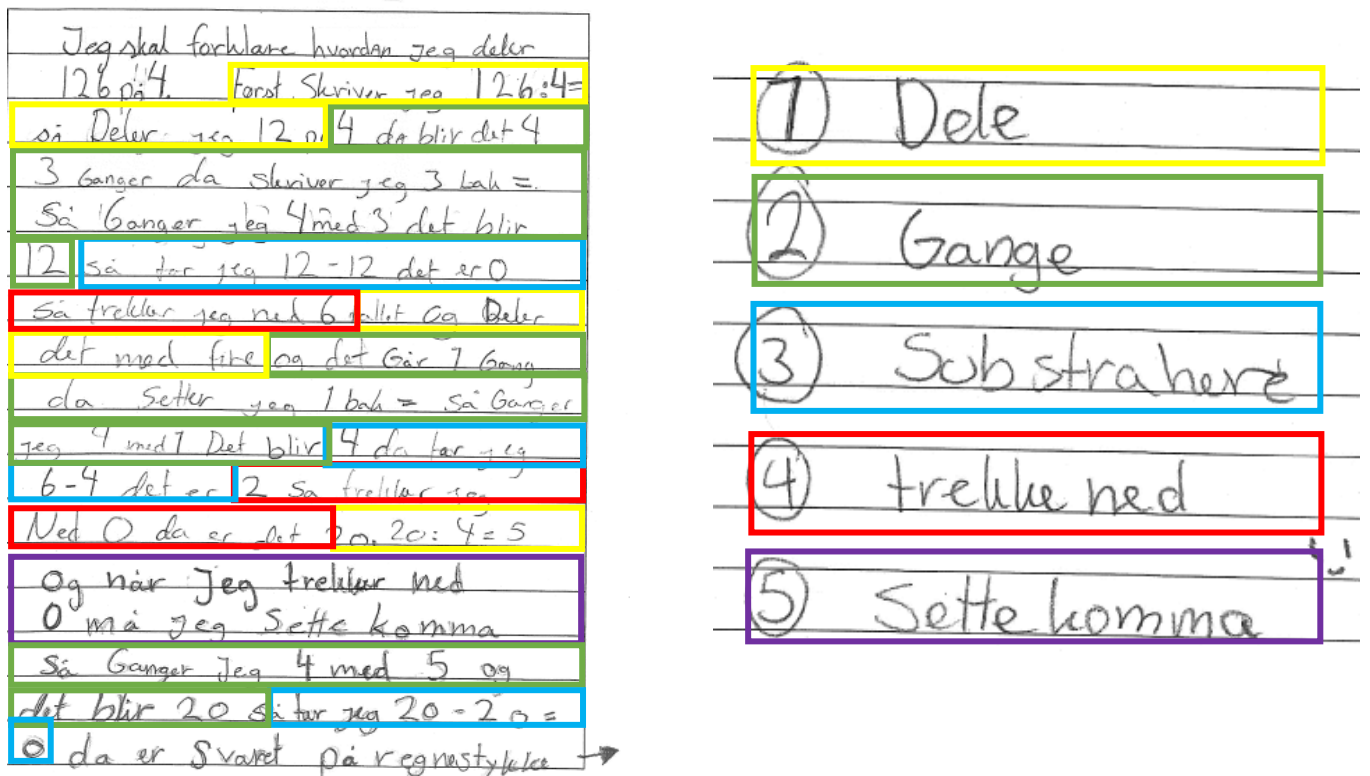 Jeg skal forklare hvordan jeg deler
126 på 4. Først Skriver jeg 126:4=
så Deler jeg 12 på 4 da blir det 4
3 Ganger da skriver jeg 3 bak =.
Så Ganger jeg 4 med 3 det blir
12 så tar jeg 12-12 det er 0
så trekker jeg ned 6 tallet og Deler
det med fire og det Går 1 Gang
da Setter jeg 1 bak = så Ganger
jeg 4 med 1 Det blir 4 da tar jeg
6-4 det er 2 så trekker jeg
Ned 0 da er det 20. 20:4=5
Og når Jeg trekker ned
0 må jeg Sette komma
Så Ganger Jeg 4 med 5 og
det blir 20 så tar jeg 20-20=
0 da er Svaret på regnestykke
1 Dele
2 Gange
3 Substrahere
4 trekke ned
5 Sette komma